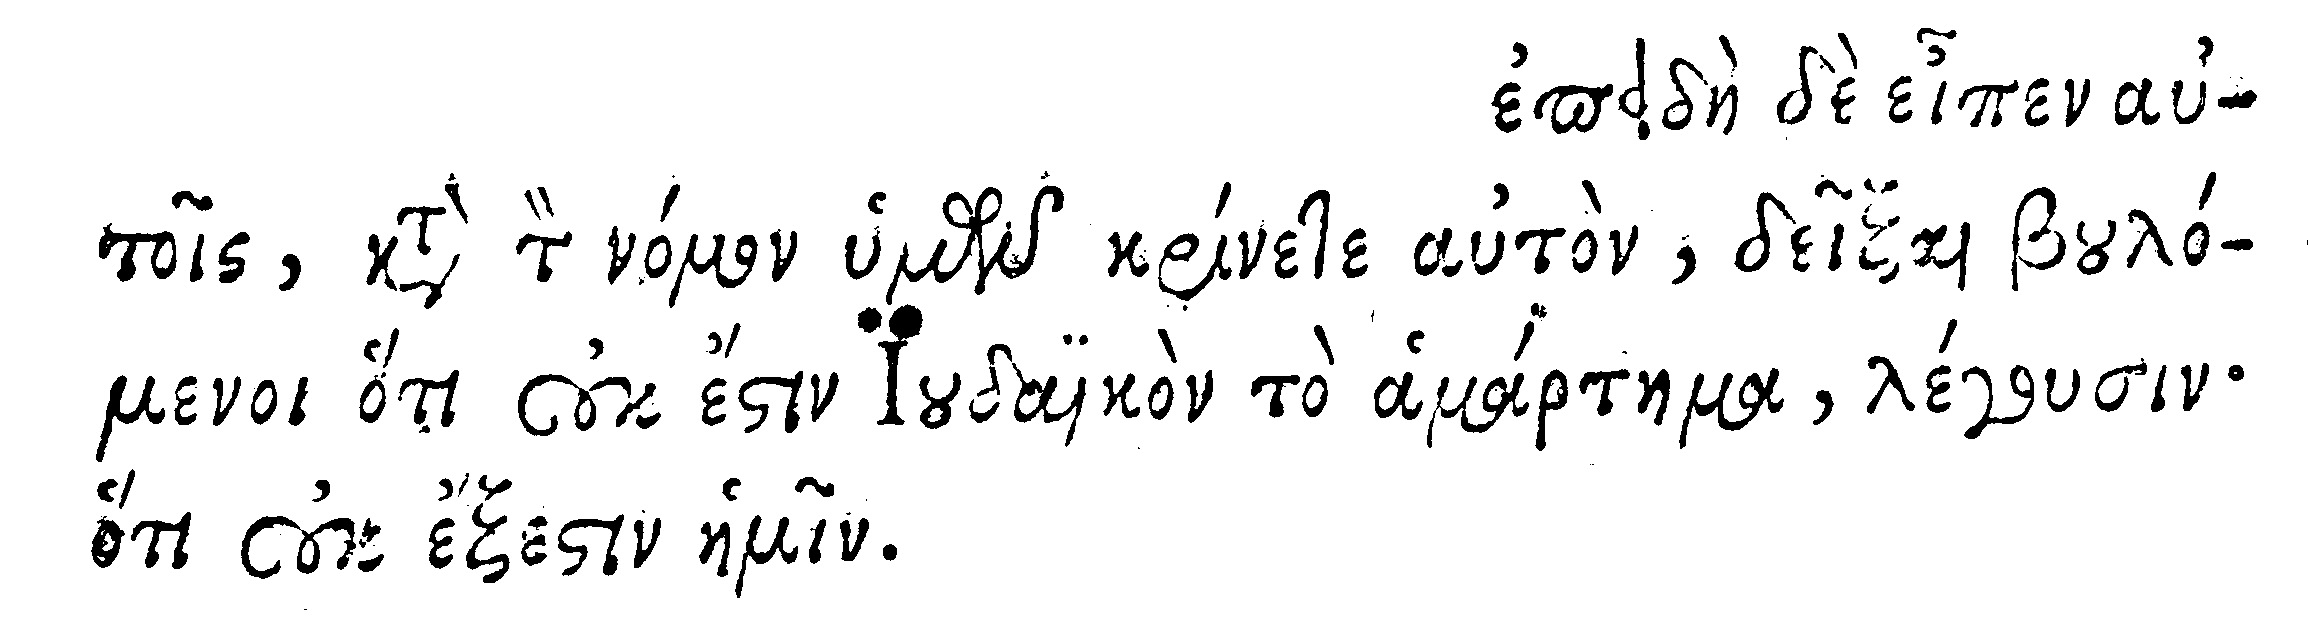 ἐπειδὴ δὲ εἶπεν αὐ-
τοῖς, κατὰ τὸν νόμον ὑμῶν κρίνετε αὐτὸν, δεῖξαι βουλό-
μενοι ὅτι οὐκ ἔστιν Ἰουδαϊκὸν τὸ ἁμάρτημα, λέγουσιν·
ὅτι οὐκ ἔξεστιν ἡμῖν.